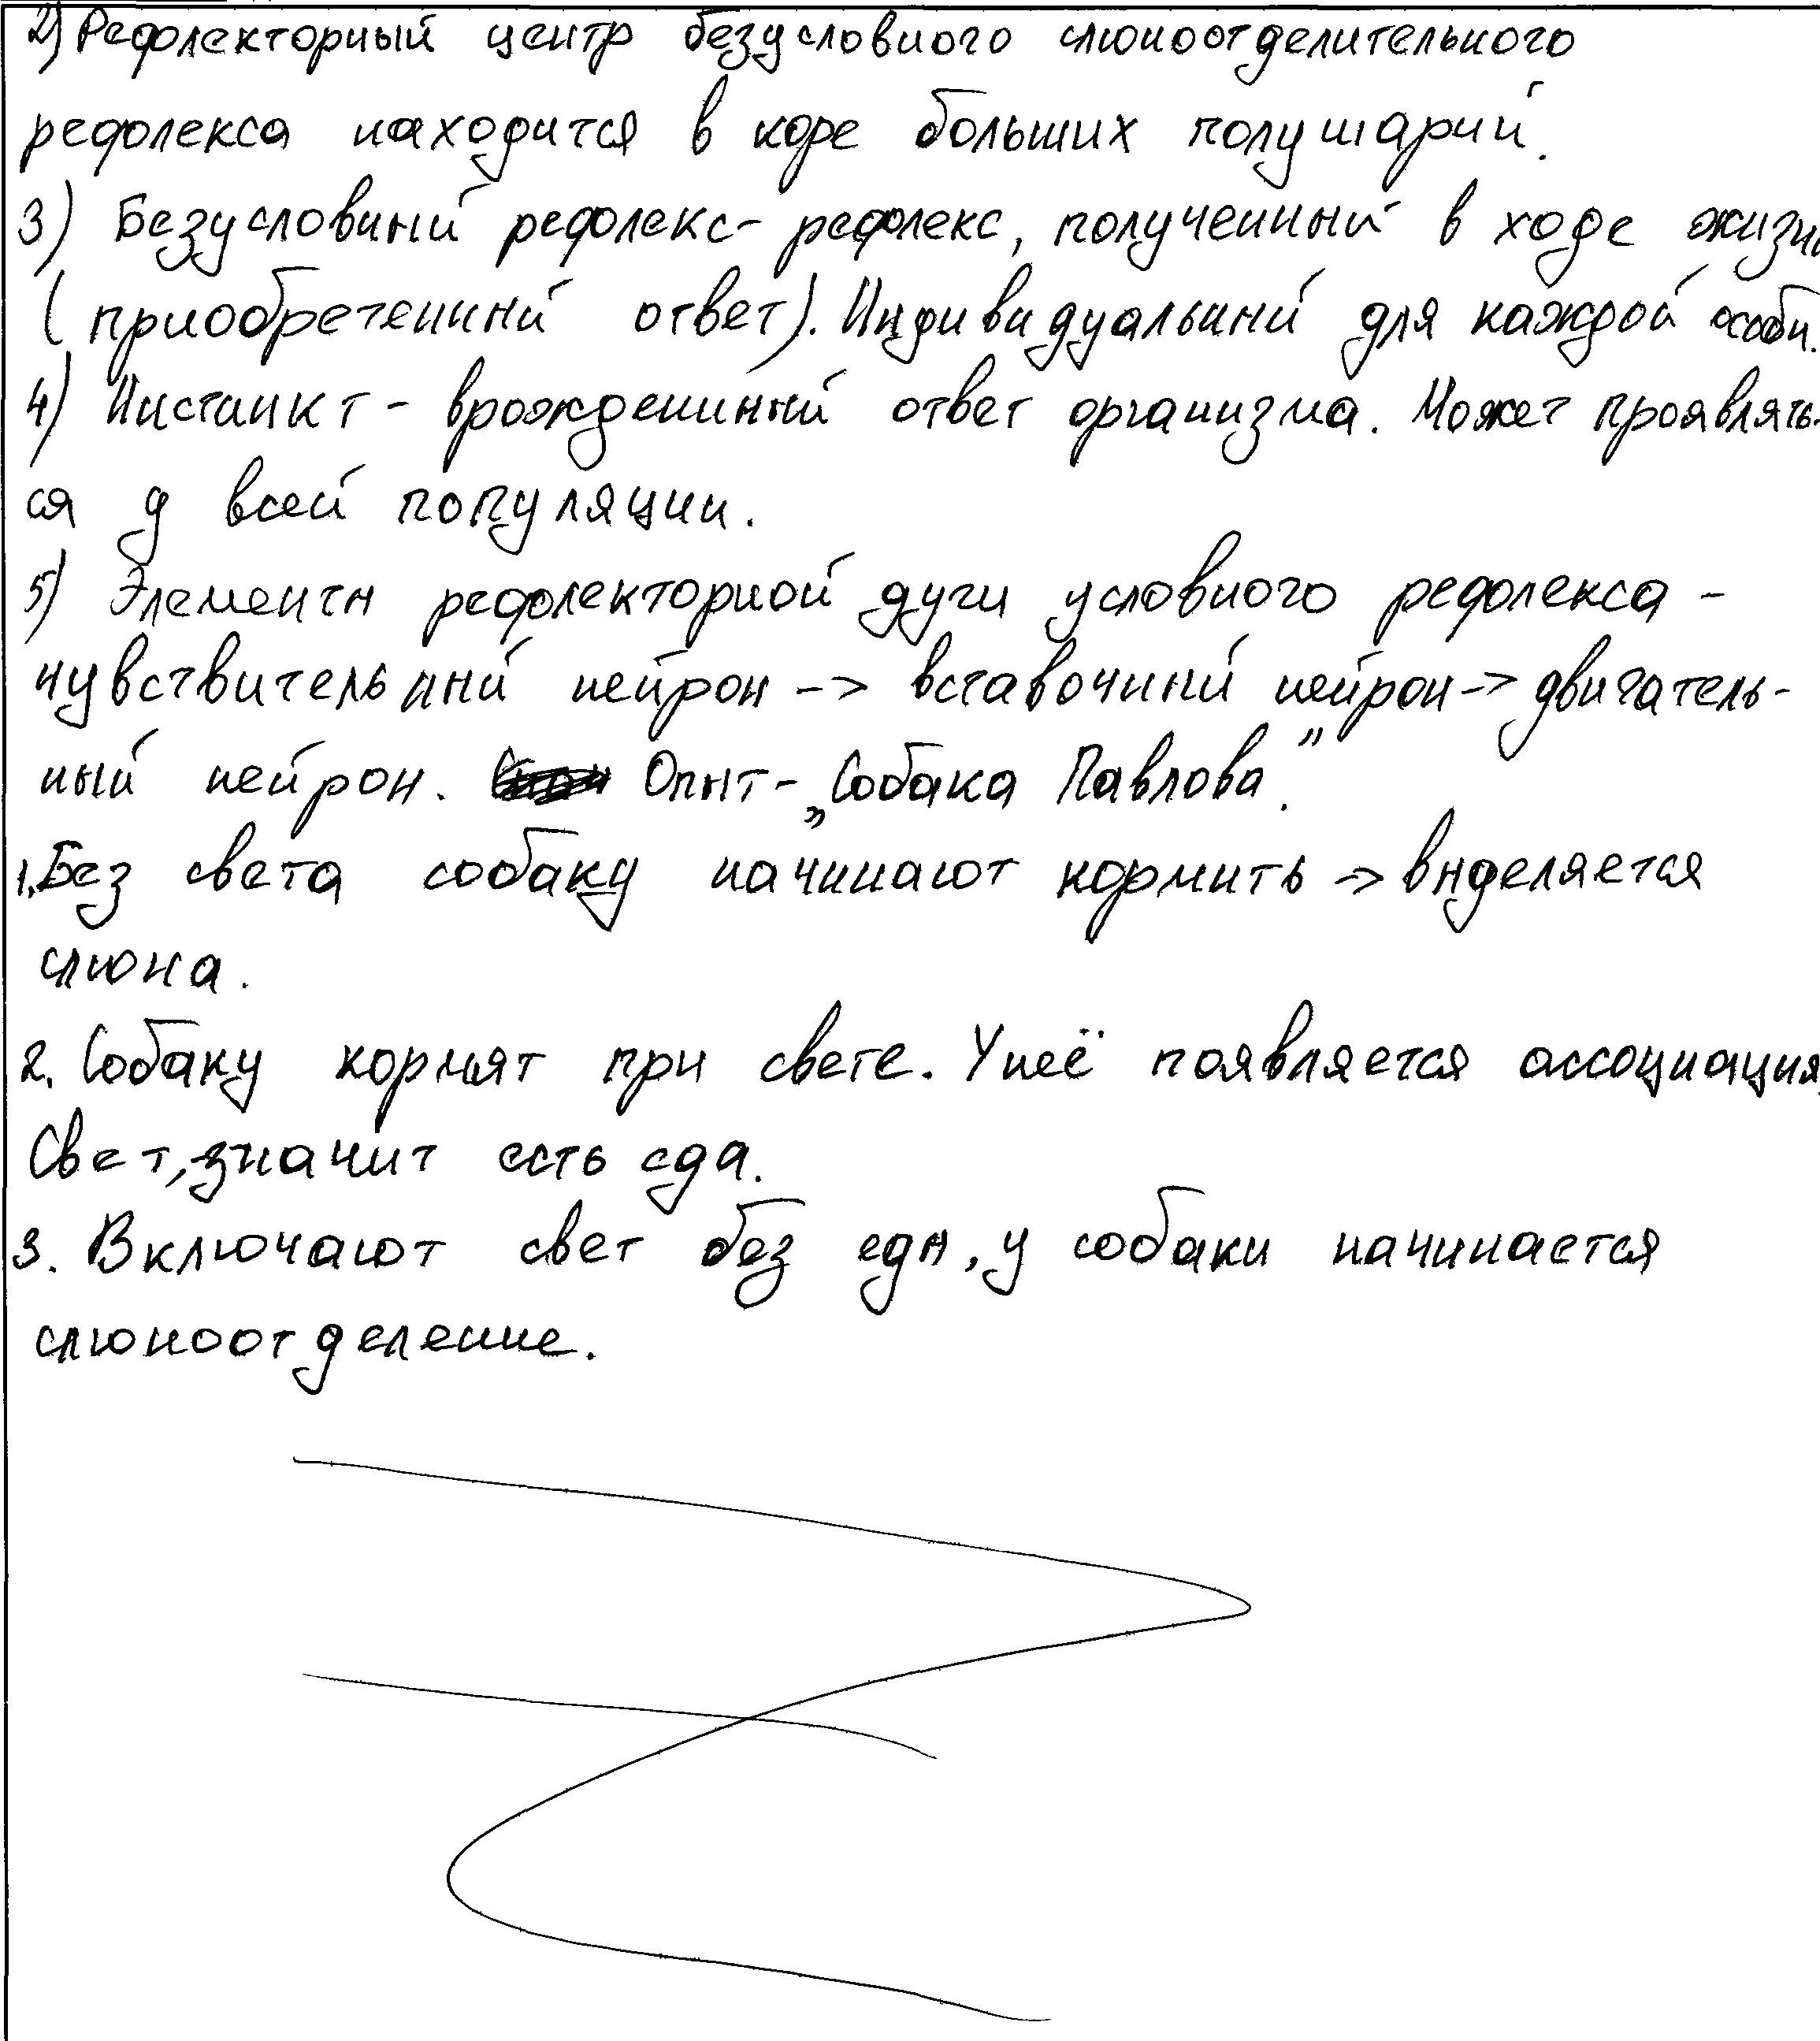 2) Рефлекторный центр безусловного слюноотделительного
рефлекса находится в коре больших полушарий.
3) Безусловный рефлекс - рефлекс, полученный в ходе жизни
(приобретенный ответ). Индивидуальный для каждой особи.
4) Инстинкт - врожденный ответ организма. Может проявлять-
ся у всей популяции.
5) Элементы рефлекторной дуги условного рефлекса -
чувствительный нейрон -> вставочный нейрон -> двигатель-
ный нейрон. Опыт - „Собака Павлова".
1. Без света собаку начинают кормить -> выделяется
слюна.
2. Собаку кормят при свете. У неё появляется ассоциация,
Свет, значит есть еда.
3. Включают свет без еды, у собаки начинается
слюноотделение.